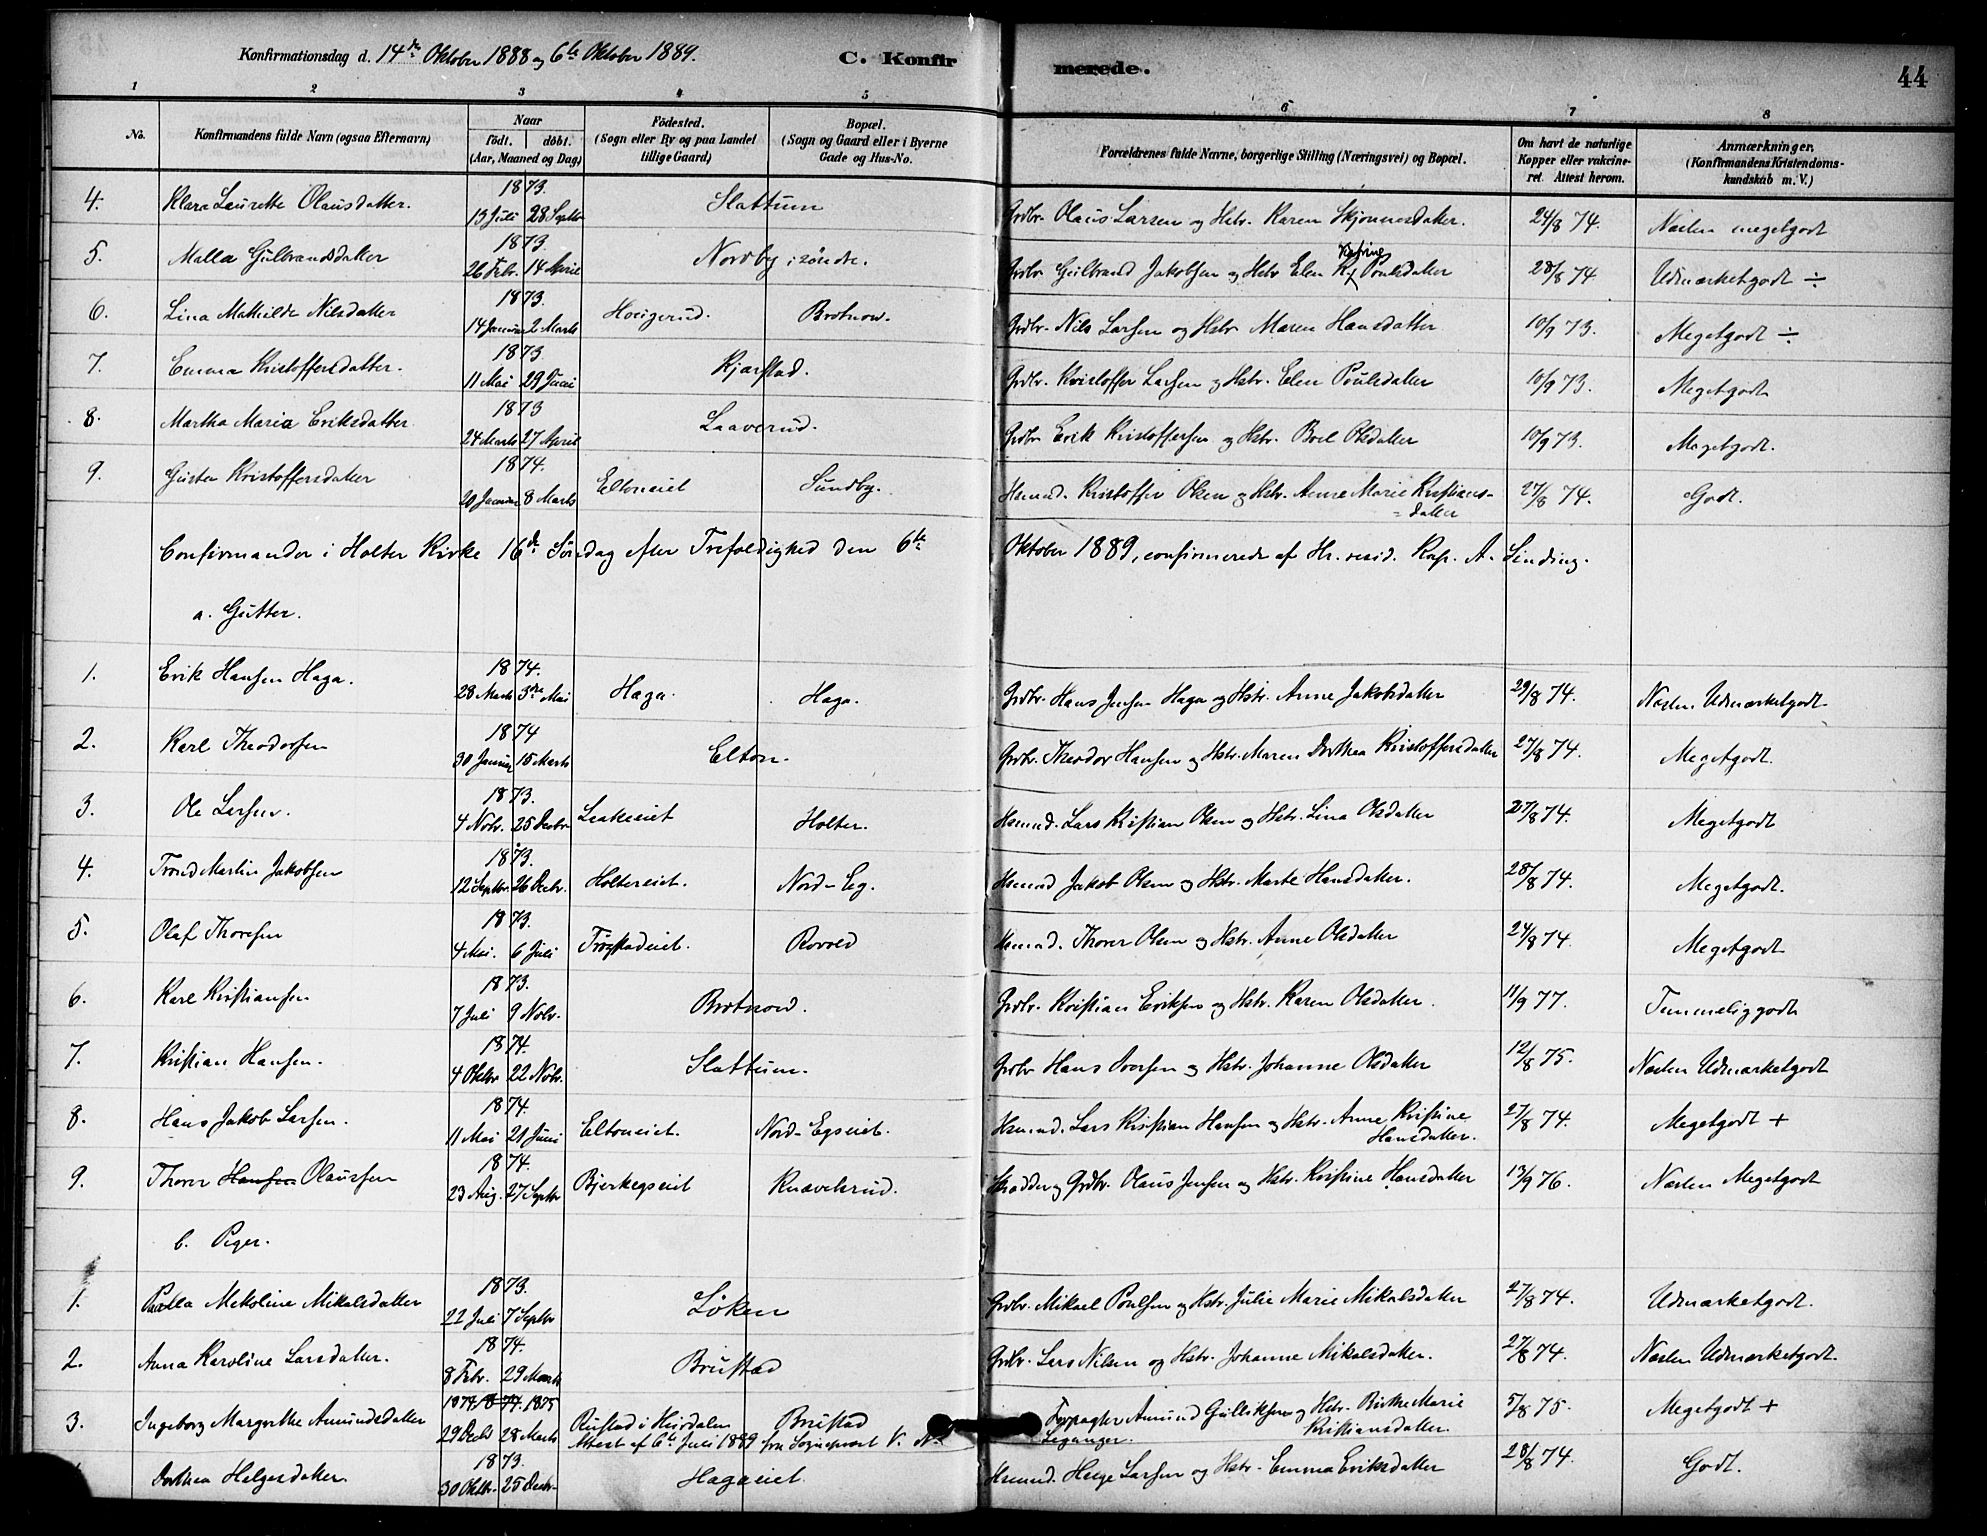 Konfirmationsdag d. 14de Oktober 1888 og 6te Oktober 1889. C. Konfirmerede. 44
1 2 3 4 5 6 7 8
No. Konfirmandens fulde Navn (ogsaa Efternavn) Naar födt. döbt. (Aar, Maaned og Dag) Födested. (Sogn eller By og paa Landet tillige Gaard) Bopæl. (Sogn og Gaard eller i Byerne Gade og Hus-No. Forældrenes fulde Navne, borgerlige Stilling (Næringsvei) og Bopæl. Om havt de naturlige Kopper eller vaccineret. Attest herom. Anmærkninger. (Konfirmandens Kristendomskundskab m. V.)
4. Klara Laurette Olausdatter. 1873. 13 Juli 28 Septbr Slattum Grdbr. Olaus Larsen og Hstr. Karen Skjönnesdatter. 24/8 74. Næsten megetgodt
5. Malla Gulbrandsdatter 1873. 26 Febr. 14 April Nordby i söndre. Grdbr Gulbrand Jakobsen og Hstr Elen Poulsdatter 28/8 74. Udmærketgodt ÷
6. Lina Mathilde Nilsdatter 1873. 14 Januar 2 Marts Brotnow. Grdbr. Nils Larsen og Hstr Maren Hansdatter 10/9 73. Megetgodt ÷
7. Emma Kristoffersdatter. 1873. 11 Mai 29 Juni Kjærstad. Grdbr. Kristoffer Larsen og Hstr. Elen Poulsdatter 10/9 73. Megetgodt
8. Martha Maria Eriksdatter 1873 24 Marts 27 April Laaverud. Grdbr Erik Kristoffersen og Hstr. Boel Olsdatter 10/9 73. Megetgodt.
9. Gusta Kristoffersdatter 1874. 20 Januar 8 Marts Eltoneiet Sundby. Hsmnd. Kristoffer Olsen og Hstr. Anne Marie Kristians-
=datter 27/8 74. Godt.
Confirmander i Holter Kirke 16de Söndag efter Trefoldighed den 6te Oktober 1889, confirmerede af Hr. resid. Kap. A. Sinding.
a. Gutter.
1. Erik Hansen Haga. 1874. 28 Marts 3die Mai Haga. Haga. Grdbr. Hans Jensen Haga og Hstr. Anne Jakobsdatter 29/8 74. Næsten Udmærketgodt
2. Karl Theodorsen 1874 30 Januar 15 Marts Elton. Grdbr. Theodor Hansen og Hstr. Maren Dorthea Kristoffersdatter 27/8 74. Megetgodt.
3. Ole Larsen. 1873. 4 Novbr. 25 Decbr Leakeeiet Holter. Hsmnd. Lars Kristian Olsen og Hstr. Lina Olsdatter 27/8 74. Megetgodt
4. Trond Martin Jakobsen 1873. 12 Septbr. 26 Decbr. Holtereiet. Nord-Eg. Hsmnd Jakob Olsen og Hstr. Marte Hansdatter. 28/8 74. Megetgodt.
5. Olaf Thoresen 1873. 4 Mai. 6 Juli Trögstadeiet. Rovold Hsmnd. Thorer Olsen og Hstr. Anne Olsdatter 24/8 74. Megetgodt
6. Karl Kristiansen 1873. 7 Juli 9 Novbr. Brotnow. Grdbr. Kristian Eriksen og Hstr. Karen Olsdatter. 11/9 77. Temmeliggodt
7. Kristian Hansen. 1874. 4 Oktbr 22 Novbr. Slattum. Grdbr Hans Iversen og Hstr. Johanne Olsdatter 12/8 75. Næsten Udmærketgodt
8. Hans Jakob Larsen. 1874. 11 Mai 21 Juni Eltoneiet. Nord-Egseiet. Hsmnd. Lars Kristian Hansen og Hstr. Anne Kristine
Hansdatter. 27/8 74. Megetgodt +
9. Thorer Hansen Olaussen 1874. 23 Aug. 27 Septbr Bjerkegseiet Knavelsrud. Skrædder og Grdbr. Olaus Jensen og Hstr. Kristine Hansdatter 13/9 76. Næsten Megetgodt
b. Piger.
1. Palla Mekoline Mikalsdatter 1873. 22 Juli 7 Septbr Löken Grdbr. Mikael Poulsen og Hstr. Julie Marie Mikalsdatter 27/8 74. Udmærketgodt.
2. Anna Karoline Larsdatter. 1874. 8 Febr. 29 Marts Brustad Grdbr. Lars Nilsen og Hstr. Johanne Mikalsdatter. 27/8 74. Næsten Udmærketgodt.
3. Ingeborg Margrethe Amundsdatter 1874 1874. 1875 29 Decbr 28 Marts Rustad i Hurdalen Brustad
Attest af 6te Juli 1889 fra Sogneprest V. N. Forpagter Amund Gulliksen og Hstr. Birthe Marie
Leganger. Kristiansdatter. 5/8 75. Megetgodt +
Dorthea Helgesdatter 1873. 30 Oktbr. 25 Decbr. Hagaeiet Hsmnd. Helge Larsen og Hstr. Emma Eriksdatter 28/8 74. Godt.